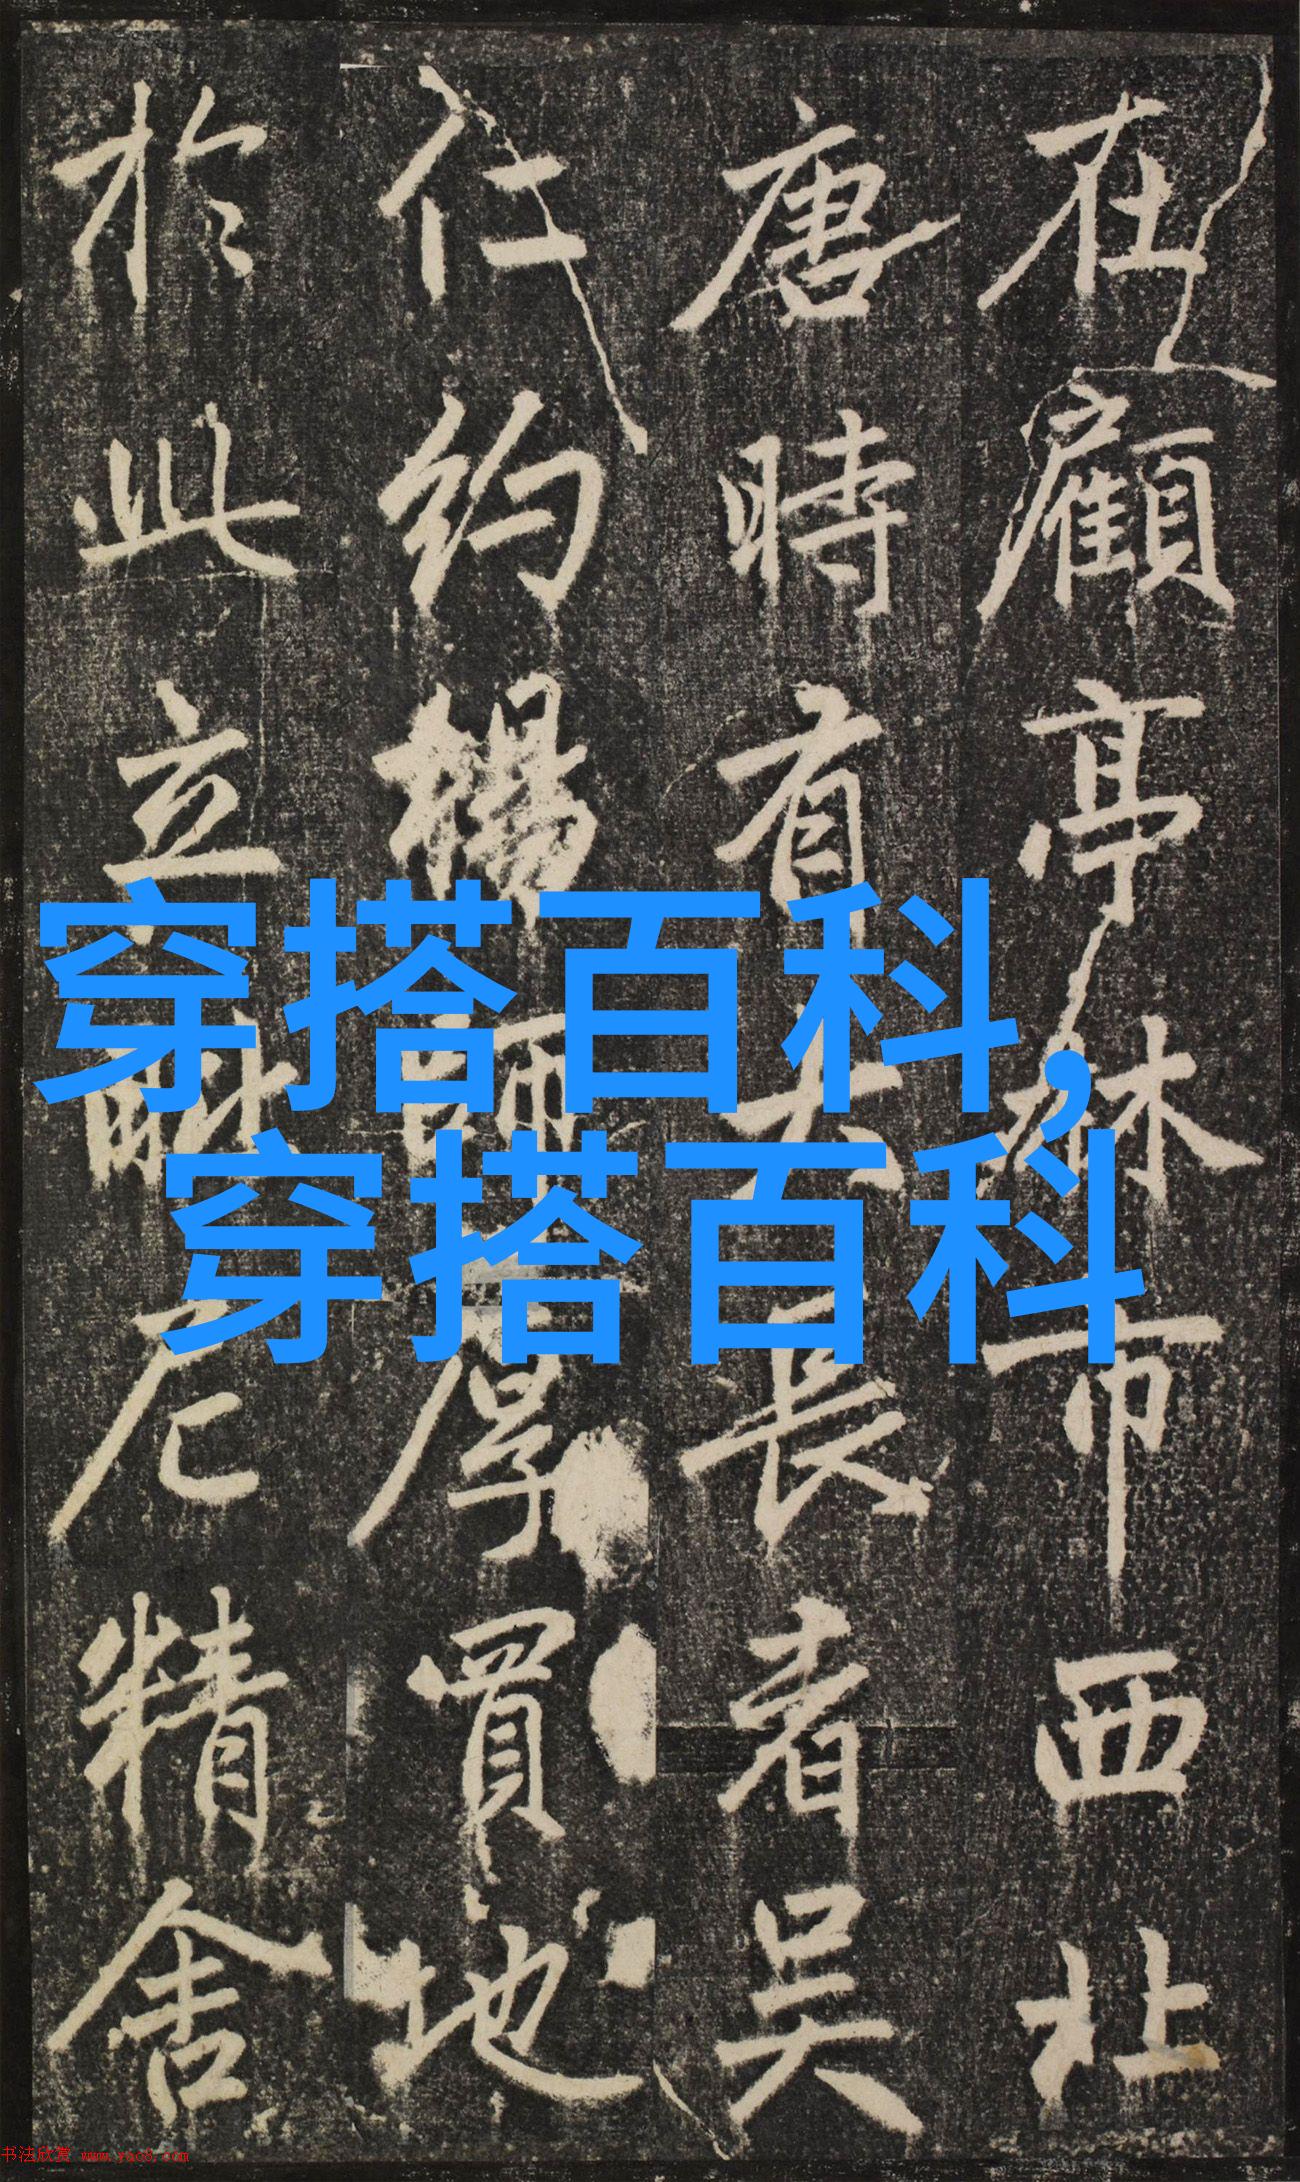 在顧亭林市西北
唐時有大長者吳
仁約楊厚買地
於此立毗尼精舍
穿搭百科，
穿搭百科
书法欣赏 www.yac8.com